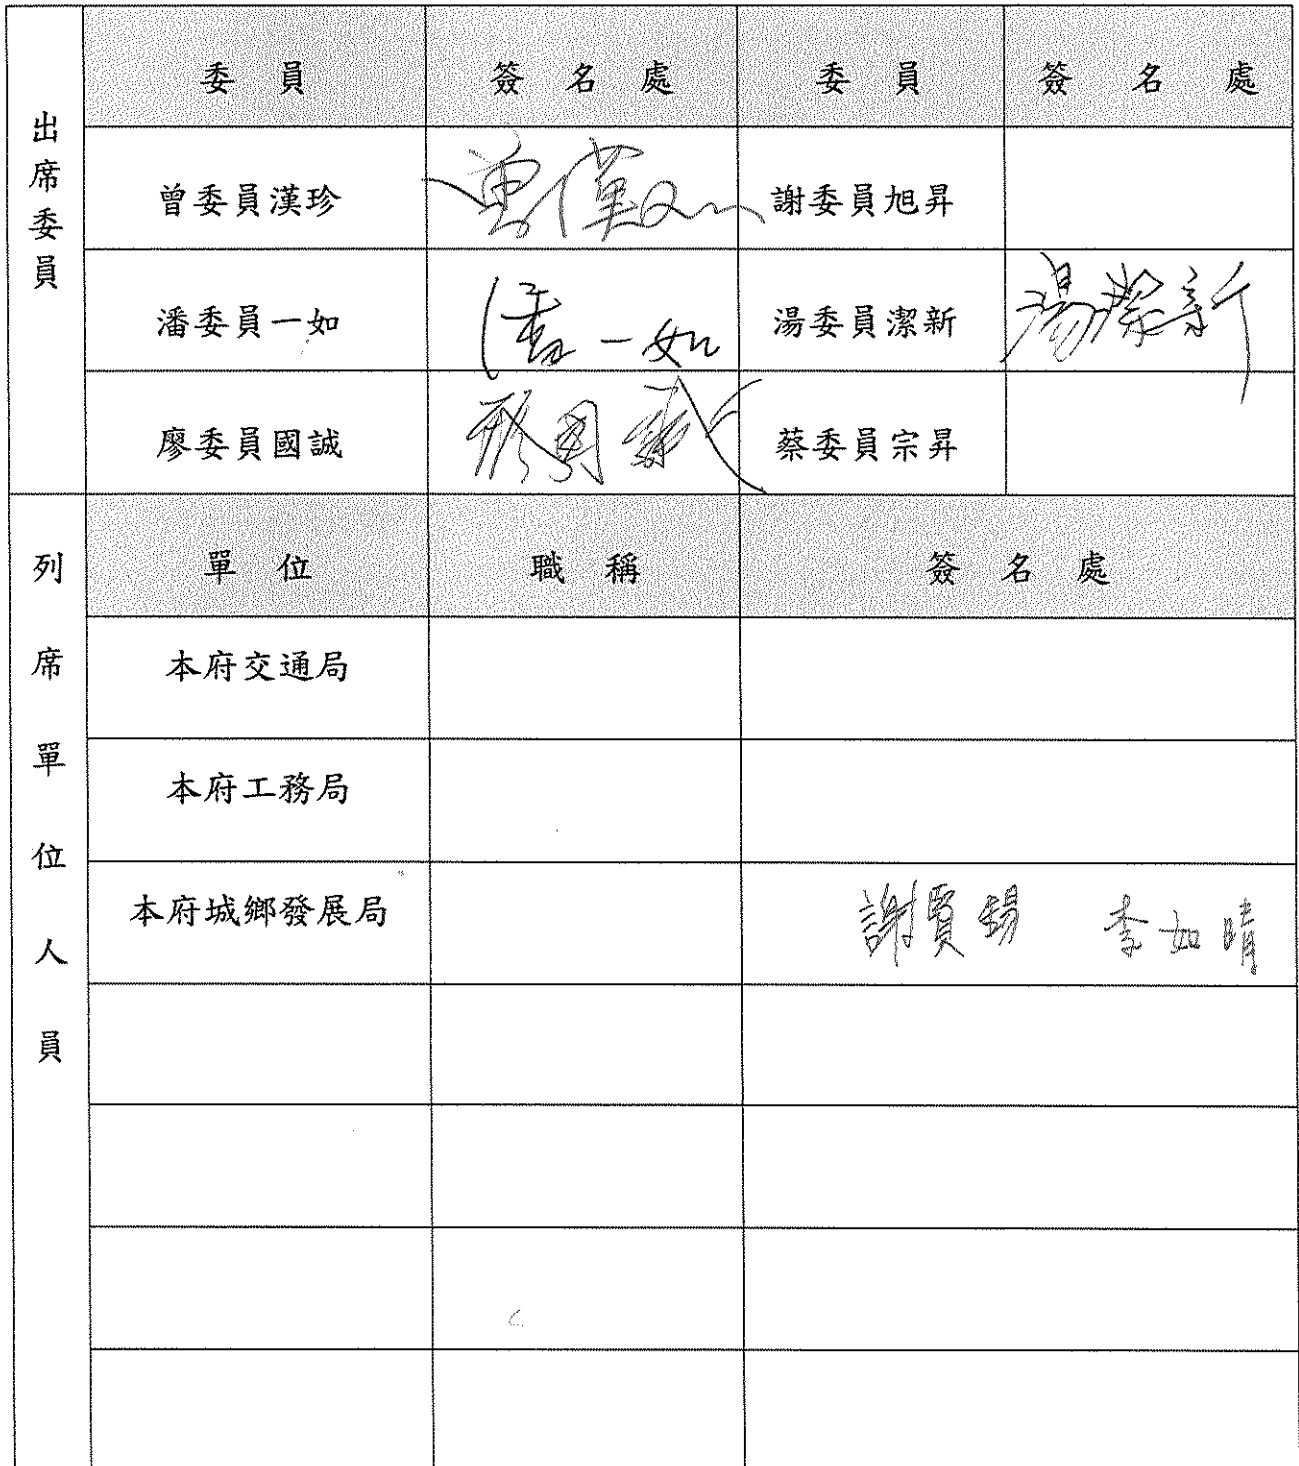 出席委員
委員 簽名處 委員 簽名處
曾委員漢珍 曾漢珍 謝委員旭昇
潘委員一如 潘一如 湯委員潔新 湯潔新
廖委員國誠 廖國誠 蔡委員宗昇
列席單位人員
單位 職稱 簽名處
本府交通局
本府工務局
本府城鄉發展局 謝賢錫 李如晴